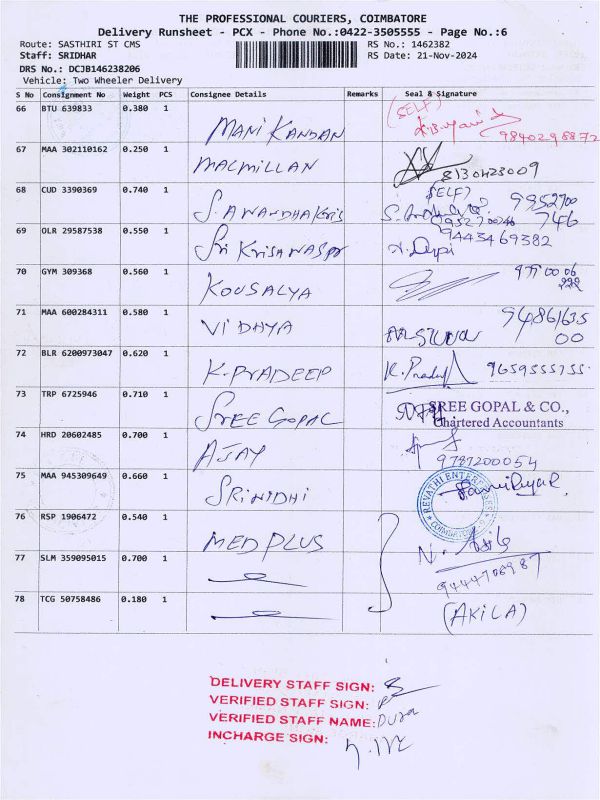 THE PROFESSIONAL COURIERS, COIMBATORE
Delivery Runsheet - PCX - Phone No.:0422-3505555 - Page No.:6
Route: SASTHIRI ST CMS RS No.: 1462382
Staff: SRIDHAR RS Date: 21-Nov-2024
DRS No.: DCJB146238206
Vehicle: Two Wheeler Delivery
S No Consignment No Weight PCS Consignee Details Remarks Seal & Signature
66 BTU 639833 0.380 1 MANI KANDAN (SELF)
9840298872
67 MAA 302110162 0.250 1 MACMILLAN 8130423009
68 CUD 3390369 0.740 1 (SELF) 9952700
746
69 OLR 29587538 0.550 1 9443469382
70 GYM 309368 0.560 1 KOUSALYA
71 MAA 600284311 0.580 1 VIDHYA
72 BLR 6200973047 0.620 1 K. PRADEEP
73 TRP 6725946 0.710 1 SREE GOPAL SREE GOPAL & CO.,
Chartered Accountants
74 HRD 20602485 0.700 1 AJAY 9787200054
75 MAA 945309649 0.660 1 SRINIDHI REVATHI ENTERPRISES
COIMBATORE
76 RSP 1906472 0.540 1 MEDPLUS
77 SLM 359095015 0.700 1 9444706987
78 TCG 50758486 0.180 1 (AKILA)
DELIVERY STAFF SIGN:
VERIFIED STAFF SIGN:
VERIFIED STAFF NAME:
INCHARGE SIGN: